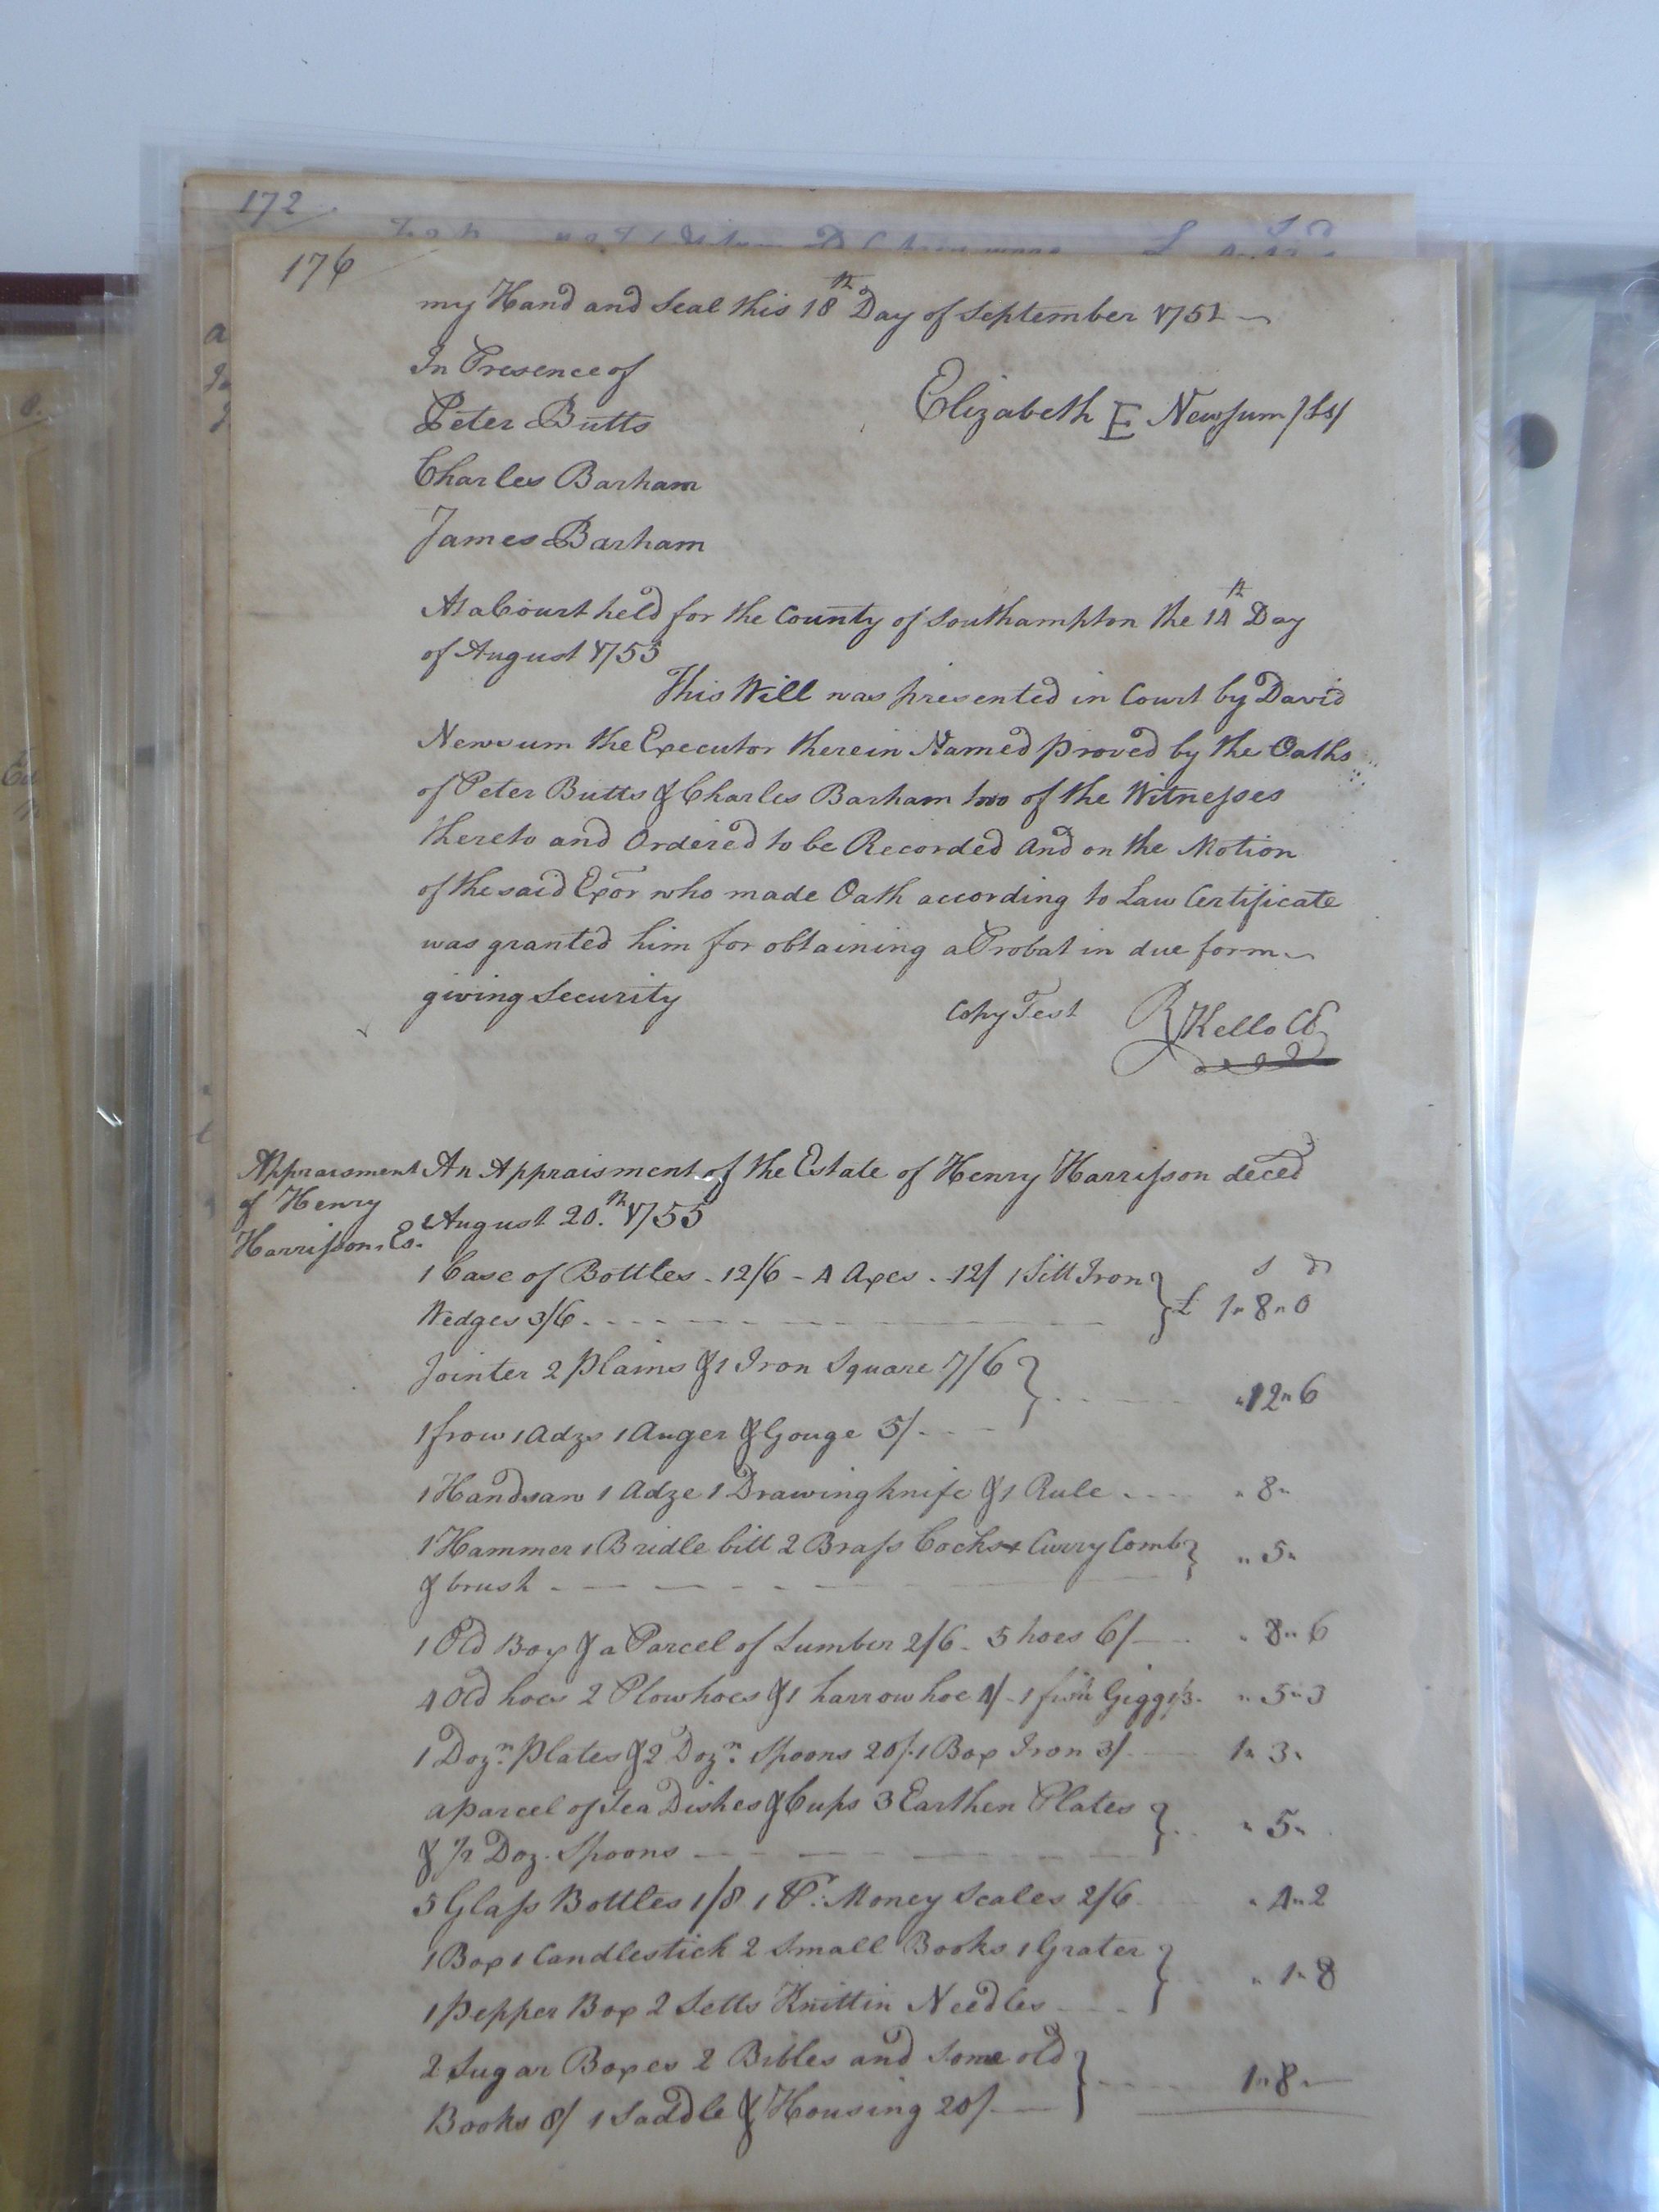 172
176
my Hand and Seal this 18th Day of September 1751
In Presence of
Elizabeth E Newsum /LS/
Peter Butts
Charles Barham
James Barham
At a Court held for the County of Southampton the 14th Day
of August 1755
This Will was presented in Court by David
Newsum the Executor therein Named proved by the Oaths
of Peter Butts & Charles Barham two of the Witnesses
thereto and Ordered to be Recorded And on the Motion
of the said Exor who made Oath according to Law Certificate
was granted him for obtaining a Probat in due form
giving Security
Copy Test R Kello CC
Appraisment
of Henry
Harrisson Es.
An Appraisment of the Estate of Henry Harrisson deced
August 20.th 1755
1 Case of Bottles - 12/6 - 4 Axes - 12/ 1 Sett Iron s d
Wedges 3/6 £ 1" 8" 0
Jointer 2 Plains & 1 Iron Square 7/6
"12" 6
1 frow 1 Adzs 1 Auger & Gouge 5/
1 Handsaw 1 Adze 1 Drawing knife & 1 Rule " 8"
1 Hammer 1 Bridle bitt 2 Brass Cocks + Curry Comb " 5"
& brush
1 Old Box & a Parcel of Lumber 2/6 - 5 hoes 6/ " 8" 6
4 Old hoes 2 Plow hoes & 1 harrow hoe 4/ - 1 fish Gigg 1/3 " 5" 3
1 Dozn. Plates & 2 Dozn. Spoons 20/ 1 Box Iron 3/ 1" 3"
a parcel of Tea Dishes & Cups 3 Earthen Plates
" 5"
& 1/2 Doz. Spoons
5 Glass Bottles 1/8 1 Pr. Money Scales 2/6 " 4" 2
1 Box 1 Candlestick 2 Small Books 1 Grater
" 1" 8
1 Pepper Box 2 Setts Knittin Needles
2 Sugar Boxes 2 Bibles and Some old
1" 8"
Books 8/ 1 Saddle & Housing 20/